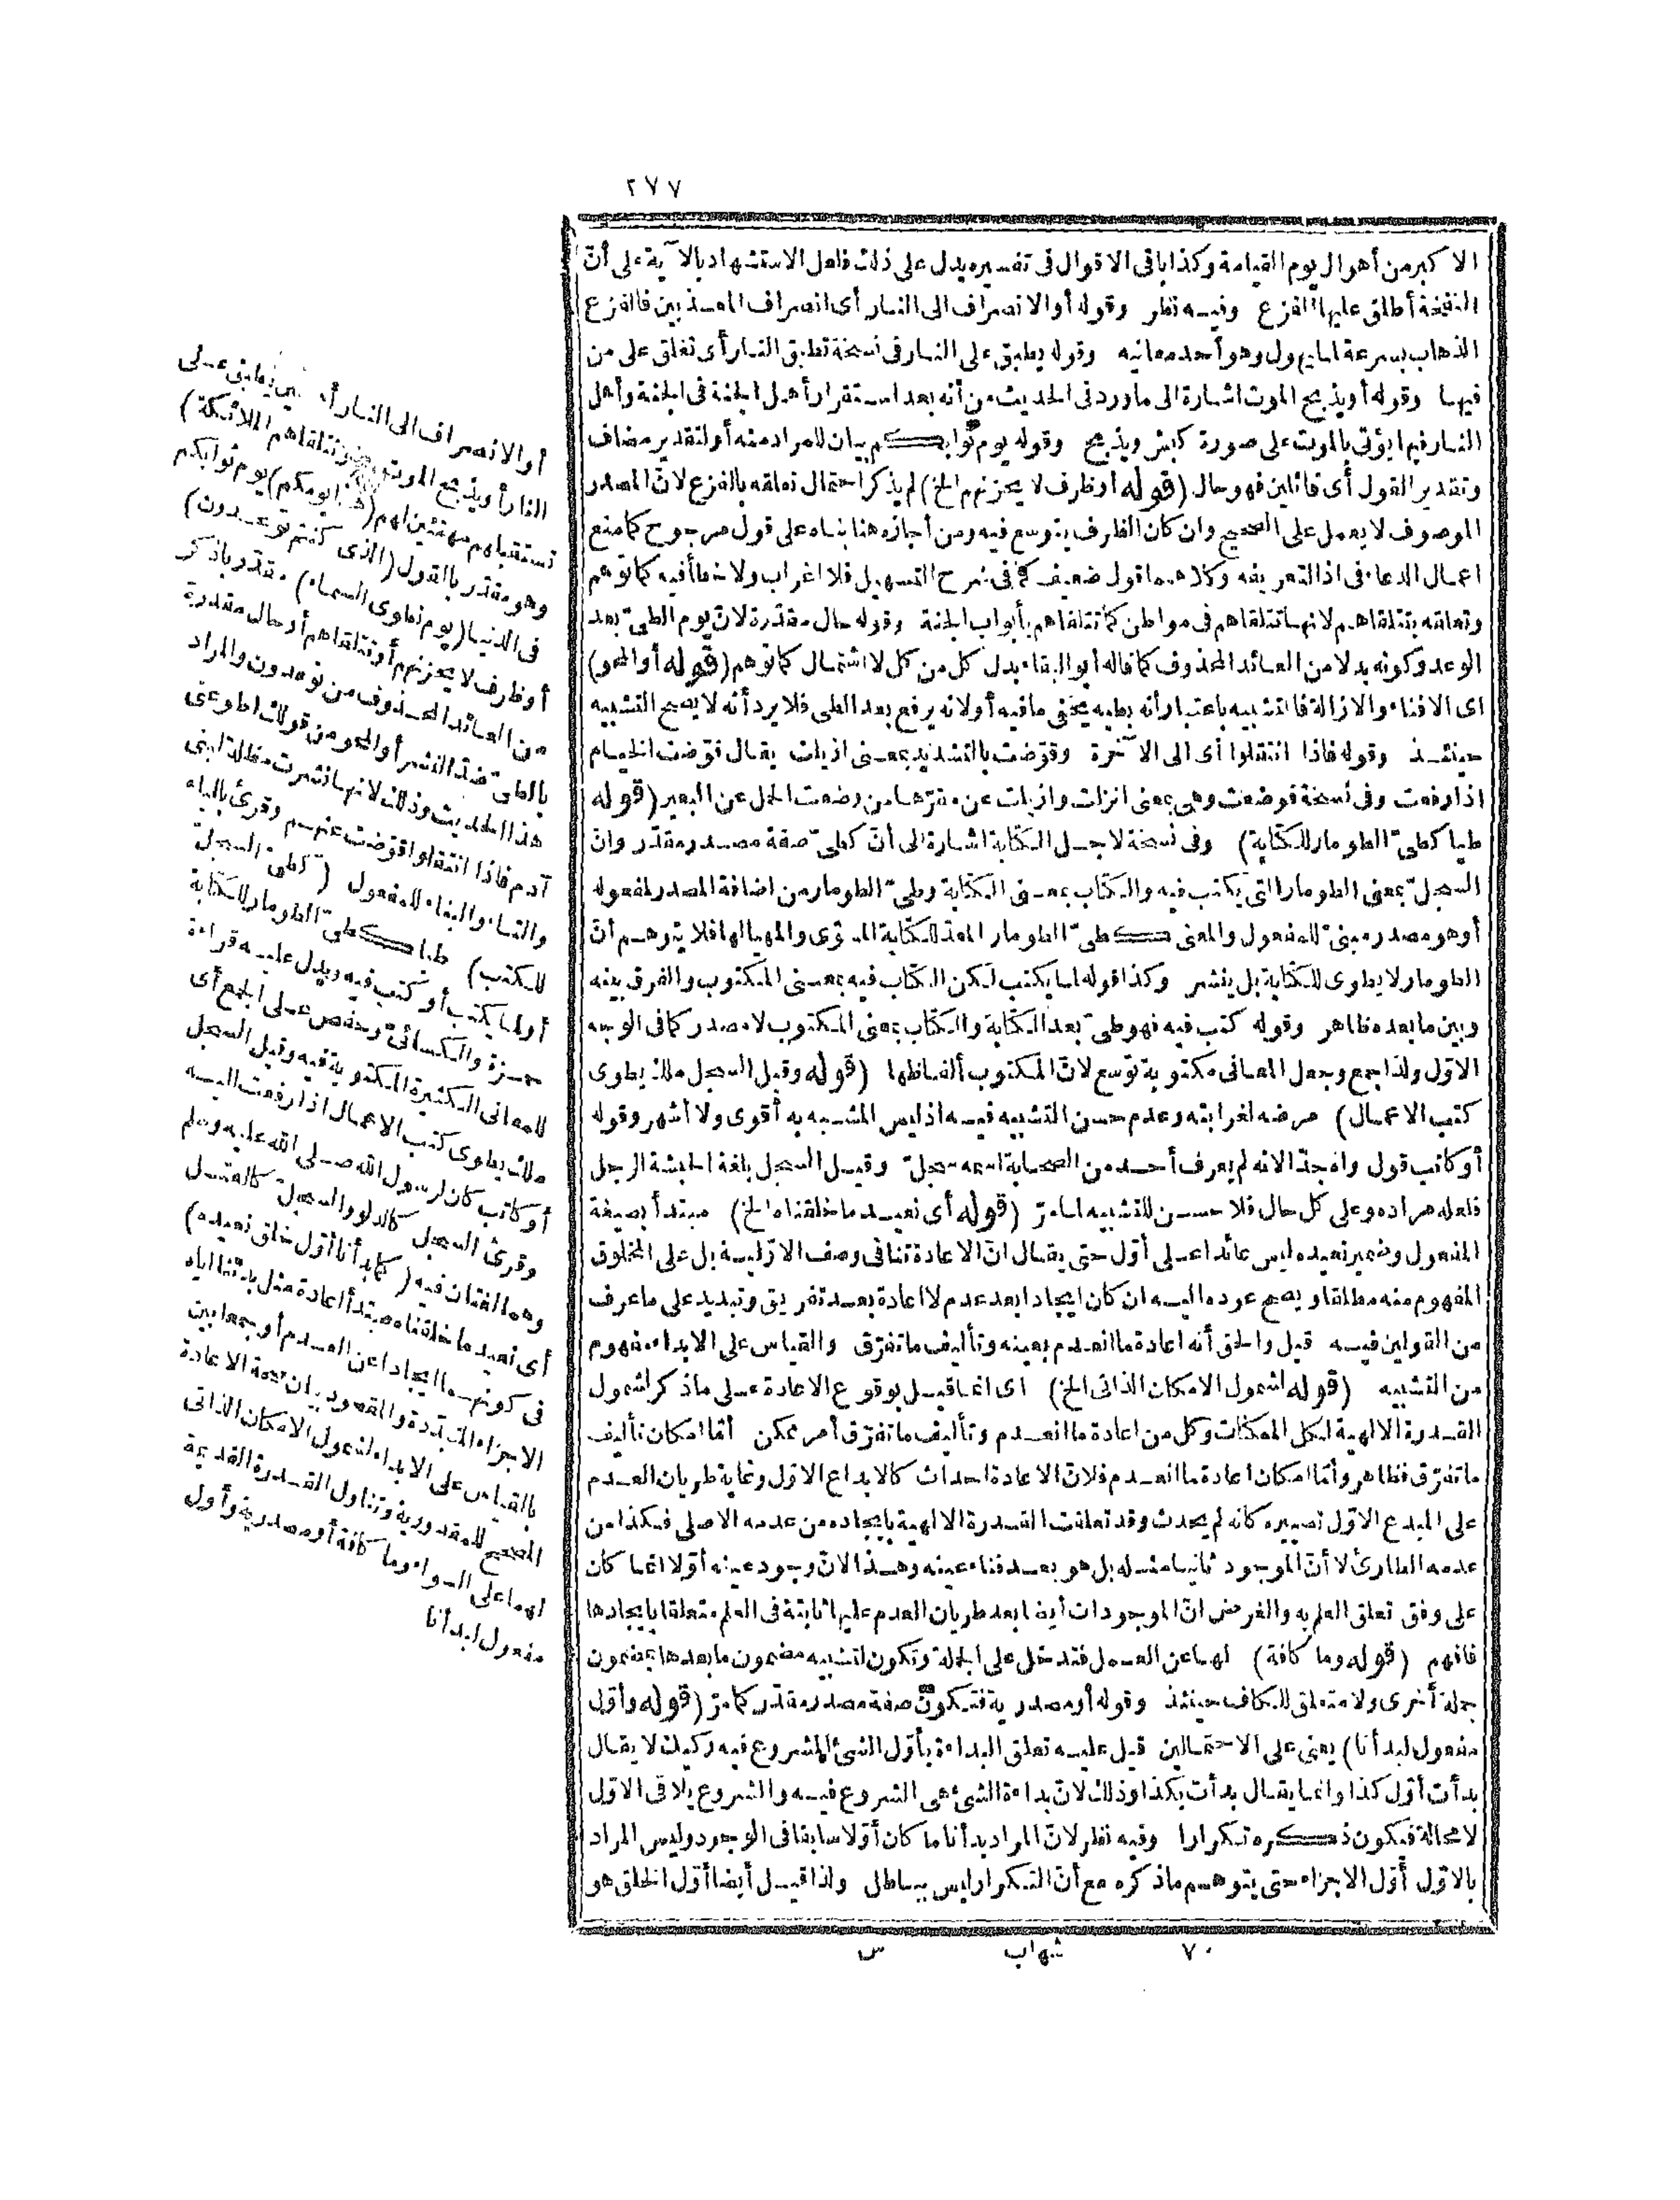 ٢٧٧
الاكبر من أهوال يوم القيامة وكذا باقى الاقوال فى تفسيره يدل على ذلك فلعل الاستشهاد بالآية على أنّ
النفخة أطلق عليها الفزع وفيه نظر وقوله أو الانصراف الى النار أى انصراف المعذبين فالفزع
الذهاب بسرعة لما يهول وهو أحد معانيه وقوله يطبق على النار فى نسخة تطبق النار أى تغلق على من
فيها وقوله أو يذبح الموت اشارة الى ما ورد فى الحديث من أنه بعد استقرار أهل الجنة فى الجنة وأهل
النار فيها يؤتى بالموت على صورة كبش ويذبح وقوله يوم ثوابكم بيان للمراد منه أو لتقدير مضاف
وتقدير القول أى قائلين فهو حال (قوله أو ظرف لا يحزنهم الخ) لم يذكر احتمال تعلقه بالفزع لانّ المصدر
الموصوف لا يعمل على الصحيح وان كان الظرف يتوسع فيه ومن أجازه هنا بناه على قول مرجوح كما منع
اعمال الدعاء فى اذا لتعريفه وكلاهما قول ضعيف كما فى شرح التسهيل فلا اغراب ولا خطأ فيه كما توهم
وتعلقه بتتلقاهم لانها تتلقاهم فى مواطن كما تتلقاهم بأبواب الجنة وقوله حال مقدّرة لانّ يوم الطىّ بعد
الوعد وكونه بدلا من العائد المحذوف كما قاله أبو البقاء بدل كل من كل لا اشتمال كما توهم (قوله أو المحو)
اى الافناء والازالة فالتشبيه باعتبار أنه بطيه يخفى ما فيه أو لانه يرفع بعد الطى فلا يرد أنه لا يصح التشبيه
حينئذ وقوله فاذا انتقلوا أى الى الآخرة وقوّضت بالتشديد بمعنى ازيلت يقال قوّضت الخيام
اذا رفعت وفى نسخة فوضعت وهى بمعنى انزلت وازيلت عن مقرّها من وضعت الحمل عن البعير (قوله
طيا كطىّ الطومار للكتابة) وفى نسخة لاجل الكتابة اشارة الى أنّ كطىّ صفة مصدر مقدّر وانّ
السجلّ بمعنى الطومار التى يكتب فيه والكتاب بمعنى الكتابة وطىّ الطومار من اضافة المصدر لمفعوله
أو هو مصدر مبنىّ للمفعول والمعنى كطىّ الطومار المعدّ للكتابة المسوّى والمهيا لها فلا يتوهم أنّ
الطومار لا يطوى للكتابة بل ينشر وكذا قوله لما يكتب لكن الكتاب فيه بمعنى المكتوب والفرق بينه
وبين ما بعده ظاهر وقوله كتب فيه فهو طىّ بعد الكتابة والكتاب بمعنى المكتوب لا مصدر كما فى الوجه
الاوّل ولذا جمع وجعل المعانى مكتوبة توّسع لانّ المكتوب ألفاظها (قوله وقيل السجل ملك يطوى
كتب الاعمال) مرضه لغرابته وعدم حسن التشبيه فيه اذ ليس المشبه به أقوى ولا أشهر وقوله
أو كاتب قول واه جدّا لانه لم يعرف أحد من الصحابة اسمه سجلّ وقيل السجل بلغة الحبشة الرجل
فلعله مراده وعلى كل حال فلا حسن للتشبيه لما مرّ (قوله أى نعيد ما خلقناه الخ) مبتدأ بصيغة
المفعول وضمير نعيده ليس عائدا على أوّل حتى يقال انّ الاعادة تنافى وصف الاوّلية بل على المخلوق
المفهوم منه مطلقا ويصح عوده اليه ان كان ايجادا بعد عدم لا اعادة بعد تفريق وتبديد على ما عرف
من القولين فيه قيل والحق أنه اعادة ما انعدم بعينه وتأليف ما تفرّق والقياس على الابداء مفهوم
من التشبيه (قوله لشمول الامكان الذاتى الخ) اى انما قيل بوقوع الاعادة على ما ذكر لشمول
القدرة الالهية لكل الممكنات وكل من اعادة ما انعدم وتأليف ما تفرّق أمر ممكن أمّا امكان تأليف
ما تفرّق فظاهر وأمّا امكان اعادة ما انعدم فلانّ الاعادة احداث كالابداع الاوّل وغاية طريان العدم
على المبدع الاوّل تصييره كانه لم يحدث وقد تعلقت القدرة الالهية بايجاده من عدمه الاصلى فكذا من
عدمه الطارئ لا أنّ الموجود ثانيا مثله بل هو بعد فناء عينه وهذا لانّ وجود عينه أوّلا انما كان
على وفق تعلق العلم به والفرض انّ الموجودات أيضا بعد طريان العدم عليها ثابتة فى العلم متعلقا بايجادها
فافهم (قوله وما كافة) لها عن العمل فتدخل على الجملة وتكون لتشبيه مضمون ما بعدها بمضمون
جملة أخرى ولا متعلق للكاف حينئذ وقوله أو مصدرية فتكون صفة مصدر مقدّر كما مرّ (قوله وأوّل
مفعول لبدأنا) يعنى على الاحتمالين قيل عليه تعلق البداءة بأوّل الشئ المشروع فيه ركيك لا يقال
بدأت أوّل كذا وانما يقال بدأت بكذا وذلك لانّ بداءة الشئ هى الشروع فيه والشروع يلاقى الاوّل
لا محالة فيكون ذكره تكرارا وفيه نظر لانّ المراد بدأنا ما كان أوّلا سابقا فى الوجود وليس المراد
بالاوّل أوّل الاجزاء حتى يتوهم ما ذكره مع أنّ التكرار ليس بباطل ولذا قيل أيضا أوّل الخلق هو
٧٠ شهاب س
أو الانصراف الى النار أو حين يطبق على
النار أو يذبح الموت وتتلقاهم الملائكة)
تستقبلهم مهنئين لهم (هذا يومكم) يوم ثوابكم
وهو مقدر بالقول (الذى كنتم توعدون)
فى الدنيا (يوم نطوى السماء) مقدر باذكر
أو ظرف لا يحزنهم أو تتلقاهم أو حال مقدرة
من العائد المحذوف من توعدون والمراد
بالطىّ ضدّ النشر أو المحو من قولك اطو عنى
هذا الحديث وذلك لانها نشرت مظلة لبنى
آدم فاذا انتقلوا قوّضت عنهم وقرئ بالياء
والتاء والبناء للمفعول (كطىّ السجلّ
للكتب) طيا كطىّ الطومار للكتابة
أو لما يكتب أو كتب فيه ويدل عليه قراءة
حمزة والكسائىّ وحفص على الجمع أى
للمعانى الكثيرة المكتوبة فيه وقيل السجل
ملك يطوى كتب الاعمال اذا رفعت اليه
أو كاتب كان لرسول الله صلى الله عليه وسلم
وقرئ السجل كالدلو والسجل كالعتل
وهما لغتان فيه (كما بدأنا أوّل خلق نعيده)
أى نعيد ما خلقناه مبتدأ اعادة مثل بدئنا اياه
فى كونهما ايجادا عن العدم أو جمعا بين
الاجزاء المتبدّدة والمقصود بيان صحة الاعادة
بالقياس على الابداء لشمول الامكان الذاتى
المصحح للمقدورية وتناول القدرة القديمة
لهما على السواء وما كافة أو مصدرية وأول
مفعول لبدأنا